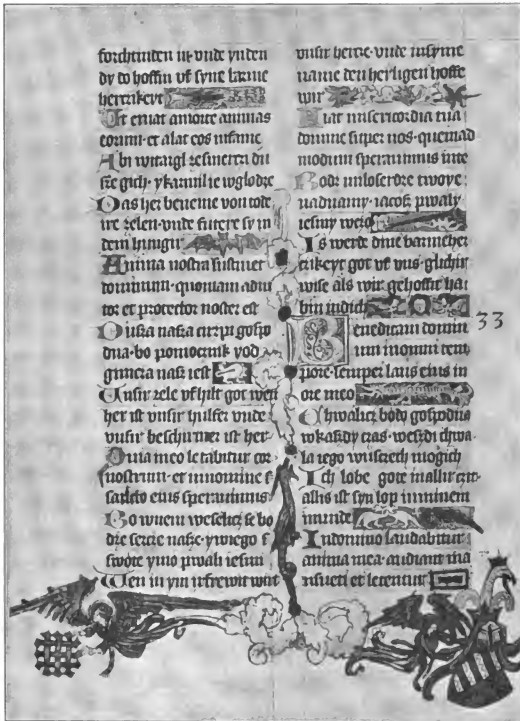 forchtinden in· vnde ynden
dy do hoffin vf syne barme
herczikeyt
Ut eruat amorte animas
eorum· et alat eos infame
Abi witargl zesmerci du
sze gich· ykarmil ie wglodze
Das her beneme von tode
ire zelen· vnde fuere sy in
dem hungir
Anima nostra sustinet
dominum· quoniam adiu
tor et protector noster est
Dusza nasza cirzpi gospo
dna· bo pomocznik yod
gimcza nasz iest
Unsir zele vf hilt got wen
her ist vnsir hulfer vnde
vnsir beschirmer ist her
Quia ineo letabitur cor
nostrum· et innomine s
sancto eius sperauimus
Bo wnem weselicz se bo
dze sercze nasze· ywiego s
swote ymo pwali iesmi
Wen in ym irfrewit wirt
vnsir hercze· vnde insyme
name den heyligen hoffe
wir
Fiat misericordia tua
domine super nos· quemad
modum sperauimus inte
Bodz miloserdze twoye
nadnamy· iacosz pwaly
iesmy wcze
Is werde dine barmeher
czikeyt got vf vns· glichir
wise als wir gehoffit ha
bin indich
33
Benedicam domin
um inomni tem
pore· semper laus eius in
ore meo
Chwalicz bodo gospodna
wkaszdy czas· weszdi chwa
la iego wuszczech mogich
Ich lobe gote in allir czit·
allis ist syn lop inminem
munde
Indomino laudabitur
anima mea· audiant ma
nsueti et letentur